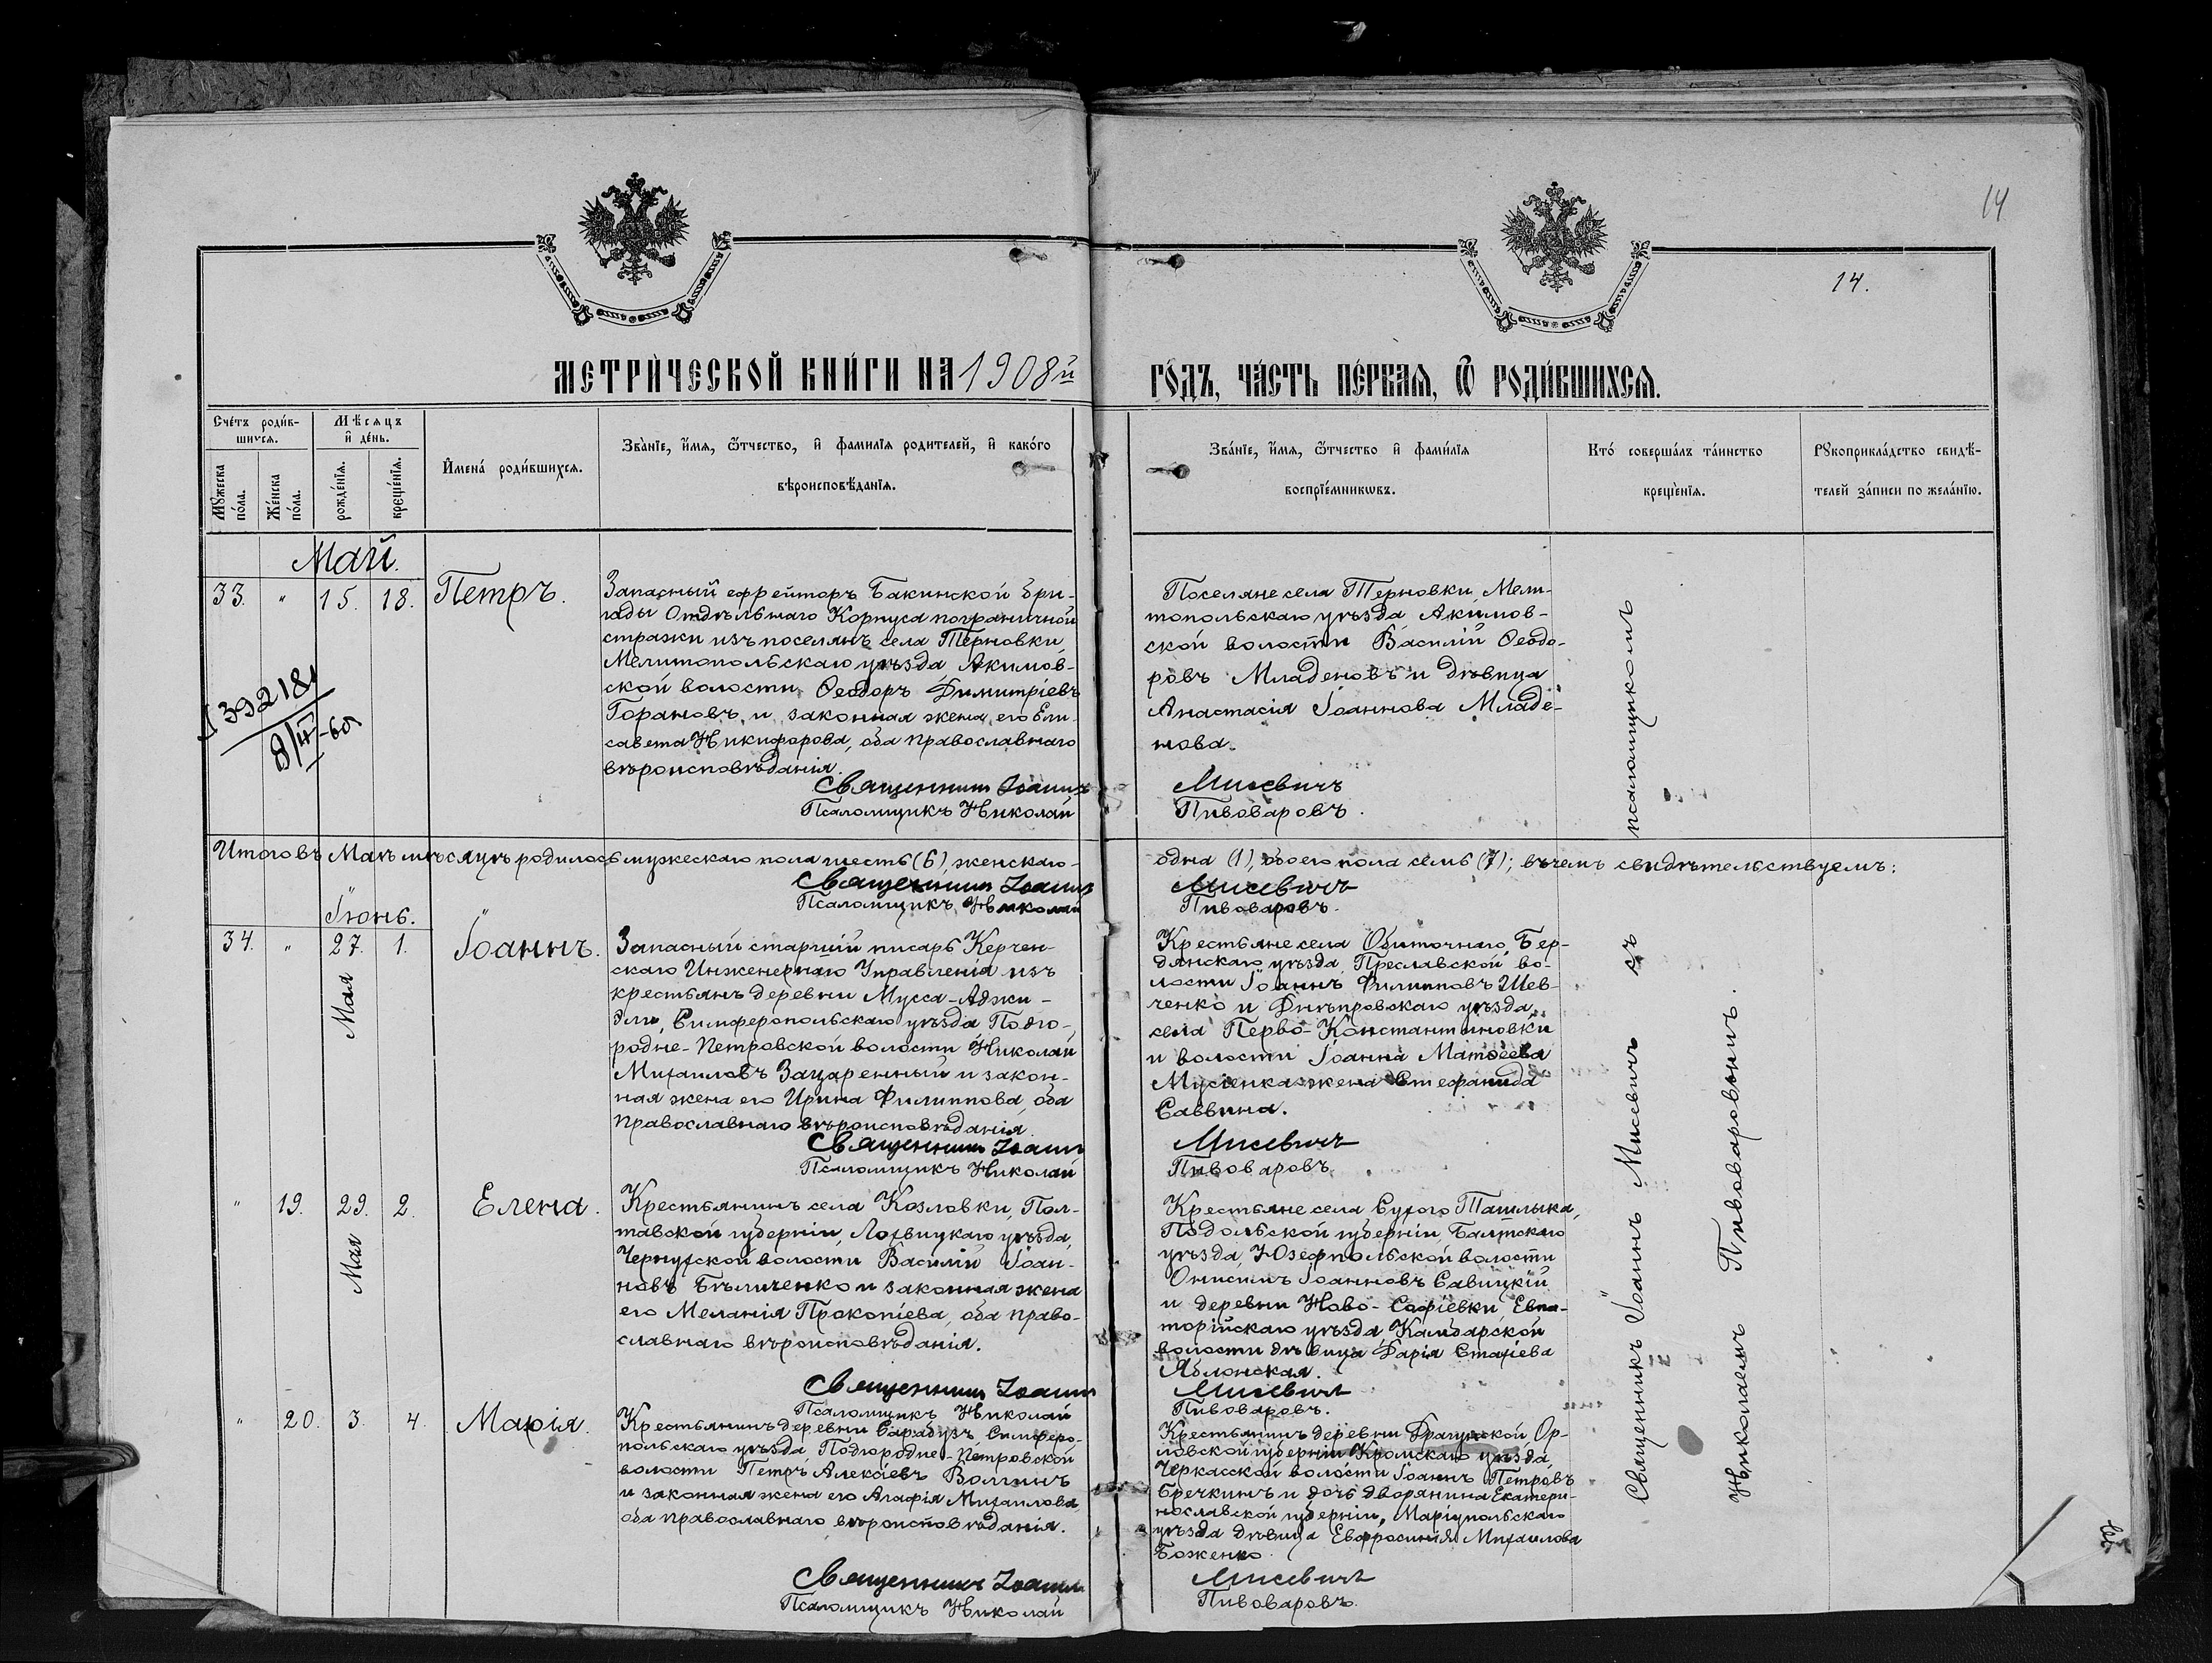 14
14.
МЕТРИЧЕСКОЙ КНИГИ НА 1908й
ГОДЪ, ЧАСТЬ ПЕРВАЯ, Ѿ РОДИВШИХСЯ.
Счетъ родив-
шихся.
Мѣсяцъ
и день.
Мужеска
пола.
Женска
пола.
рожденія.
крещенія.
Имена родившихся.
Званіе, имя, ѿтчество, и фамилія родителей, и какого
вѣроисповѣданія.
Званіе, имя, ѿтчество и фамилія
воспріемниковъ.
Кто совершалъ таинство
крещенія.
Рукоприкладство свидѣ-
телей записи по желанію.
Май.
33. " 15. 18. Петръ.
Запасный ефрейторъ Бакинской бри-
гады Отдѣльнаго Корпуса пограничной
стражи изъ поселянъ села Терновки,
Мелитопольскаго уѣзда Акимов-
ской волости, Ѳеодоръ Димитріевъ
Горановъ и законная жена его Ели-
савета Никифорова, оба православнаго
вѣроисповѣданія.
Священникъ Іоаннъ
Псаломщикъ Николай
Поселяне села Терновки, Мели-
топольскаго уѣзда Акимов-
ской волости Василій Ѳеодо-
ровъ Младеновъ и дѣвица
Анастасія Іоаннова Младе-
нова.
Мисевичъ
Пивоваровъ.
39218
8/IV-60
Итого въ Маѣ мѣсяцѣ родилось мужескаго пола шесть (6), женскаго -
одна (1), обоего пола семь (7); въ чемъ свидѣтельствуемъ:
Священникъ Іоаннъ
Псаломщикъ Николай
Мисевичъ
Пивоваровъ.
Іюнь.
34. " 27. 1. Іоаннъ.
Мая
Запасный старшій писарь Керчен-
скаго Инженернаго Управленія изъ
крестьянъ деревни Мусса-Аджи-
Эли, Симферопольскаго уѣзда Подго-
родне-Петровской волости Николай
Михаиловъ Зацаренный и закон-
ная жена его Ирина Филиппова, оба
православнаго вѣроисповѣданія.
Священникъ Іоаннъ
Псаломщикъ Николай
Крестьяне села Обиточнаго, Бер-
дянскаго уѣзда Преславской во-
лости Іоаннъ Филипповъ Шев-
ченко и Днѣпровскаго уѣзда,
села Перво-Константиновки
и волости Іоанна Матѳеева
Мусіенка жена Стефанида
Саввина.
Мисевичъ
Пивоваровъ.
" 19. 29. 2. Елена.
Мая
Крестьянинъ села Козловки, Пол-
тавской губерніи, Лохвицкаго уѣзда,
Чернухской волости Василій Іоан-
новъ Бѣличенко и законная жена
его Меланія Прокопіева, оба право-
славнаго вѣроисповѣданія.
Священникъ Іоаннъ
Псаломщикъ Николай
Крестьяне села Сухого Ташлыка,
Подольской губерніи, Балтскаго
уѣзда, Юзефпольской волости
Онисимъ Іоанновъ Савицкій
и деревни Ново-Софіевки, Евпа-
торійскаго уѣзда Камбарской
волости дѣвица Дарія Стахіева
Яблонская.
Мисевичъ
Пивоваровъ.
" 20. 3. 4. Марія.
Крестьянинъ деревни Сарабузъ Симферо-
польскаго уѣзда Подгородне-Петровской
волости Петръ Алексіевъ Волгинъ
и законная жена его Агафія Михаилова,
оба православнаго вѣроисповѣданія.
Священникъ Іоаннъ
Псаломщикъ Николай
Крестьянинъ деревни Ор-
ловской губерніи Кромскаго уѣзда,
Черкасской волости Іоаннъ Петровъ
Бречкинъ и дочь дворянина Екатери-
нославской губерніи, Маріупольскаго
уѣзда дѣвица Евфросинія Михаилова
Боженко.
Мисевичъ
Пивоваровъ.
Священникъ Іоаннъ Мисевичъ съ псаломщикомъ
Николаемъ Пивоваровымъ.